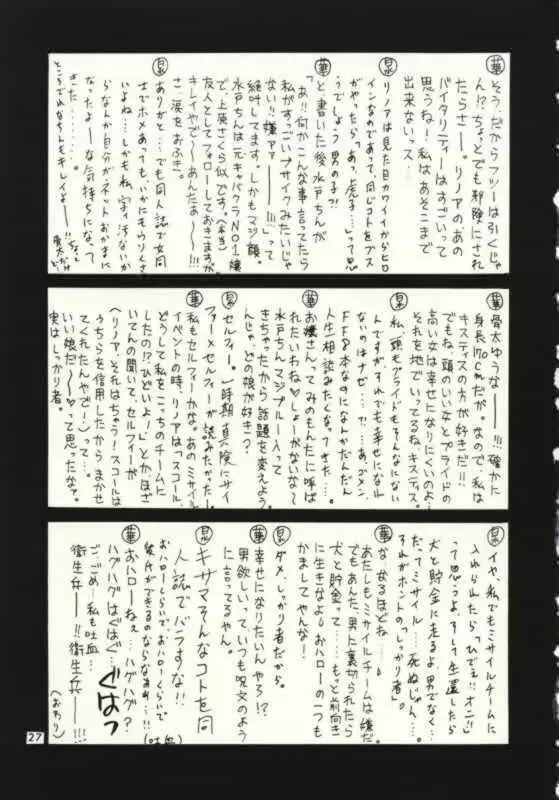 華 そう、だからフツーは引くじゃ
ん!?ちょっとでも邪険にされ
たらさー。リノアのあの
バイタリティーはすごいって
思うね!私はあそこまで
出来ないっス…
晃 リノアは見た目カワイイからヒロ
インなのであって、同じコトをブス
がやったら「あっ虎子…」って思
うでしょう男の子!!
華 と書いた後水戸ちんが
「あ!!何かこんな事言ってたら
私がすっごいブサイクみたいじゃ
ない!!嫌アァーーー!!!」って
絶叫してます。しかもマジ顔。
水戸ちんは元キャバクラNO.1嬢
で、上原さくら似です。(本当)
友人としてフォローしておきますが
キレイやでーあんたぁ〜!!!
さ、涙をおふき。
晃 ありがと…でも同人誌で女同
士でホメあっても、いかにもうりくさ
いよね…しかも私字汚ないか
らなんか自分がネットおかまに
なったよーな気持ちになって
きた…。
ところでれなちんもキレイよーー!!
華 骨太ゆうなーー!!!確かに
身長170cmだが。なので、私は
キスティスの方が好きだ!!
でもね、頭のいい女とプライドの
高い女は幸せになりにくいのよ…
それを地でいってるね、キスティス。
晃 私、頭もプライドもそんなにない
んですがそれでも幸せになれ
ないのはナゼ…?…あ、ゴメン
FF8本なのになんかだんだん
人生相談みたくなってきた…。
華 お嬢さんってみのもんたに呼ば
れたいわね♡しょーがないな〜
水戸ちんマジブルー入って
きちゃったから話題を変えよう。
んじゃ、どの娘が好き?
晃 セルフィー。一時期真険にサイ
ファー×セルフィーが読みたかった…
華 私もセルフィーかな。あのミサイル
イベントの時、リノアは「スコール
どうして私をこっちのチームに
したの!?ひどいよ!」とかほざ
いてんの聞いて、セルフィーが
「リノア、それはちゃう!スコールは
うちらを信用したからまかせ
てくれたんやでー」って…。
いい娘だ〜♡って思ったなァ。
実はしっかり者。
晃 イヤ、私でもミサイルチームに
入れられたら「ひでェ!!オニ!!」
って思うよ。そして生還したら
犬と貯金に走るよ、男でなく…
だってミサイル…死ぬじゃん…。
それがホントの「しっかり者」。
華 な、なるほどね…
あたしもミサイルチームは嫌だ。
でもあんた、男に裏切られたら
犬と貯金って……もっと前向き
に生きなよ!おハローの一つも
かましてやんな!
晃 ダメ、しっかり者だから。
華 幸せになりたいんやろ!?
男欲しいって、いつも呪文のよう
に言ってるやん。
晃 キサマそんなコトを同
人誌でバラすな!!
おハローしらいでおハローくらいで
彼氏ができるのならなぁぁ…!!(吐血)
華 おハローねぇ…ハグハグ?
ハグハグはぐはぐ…ぐはっ
ごっごめ…私も吐血…
衛生兵ーー!!衛生兵ーー!!!
(おわり)
27